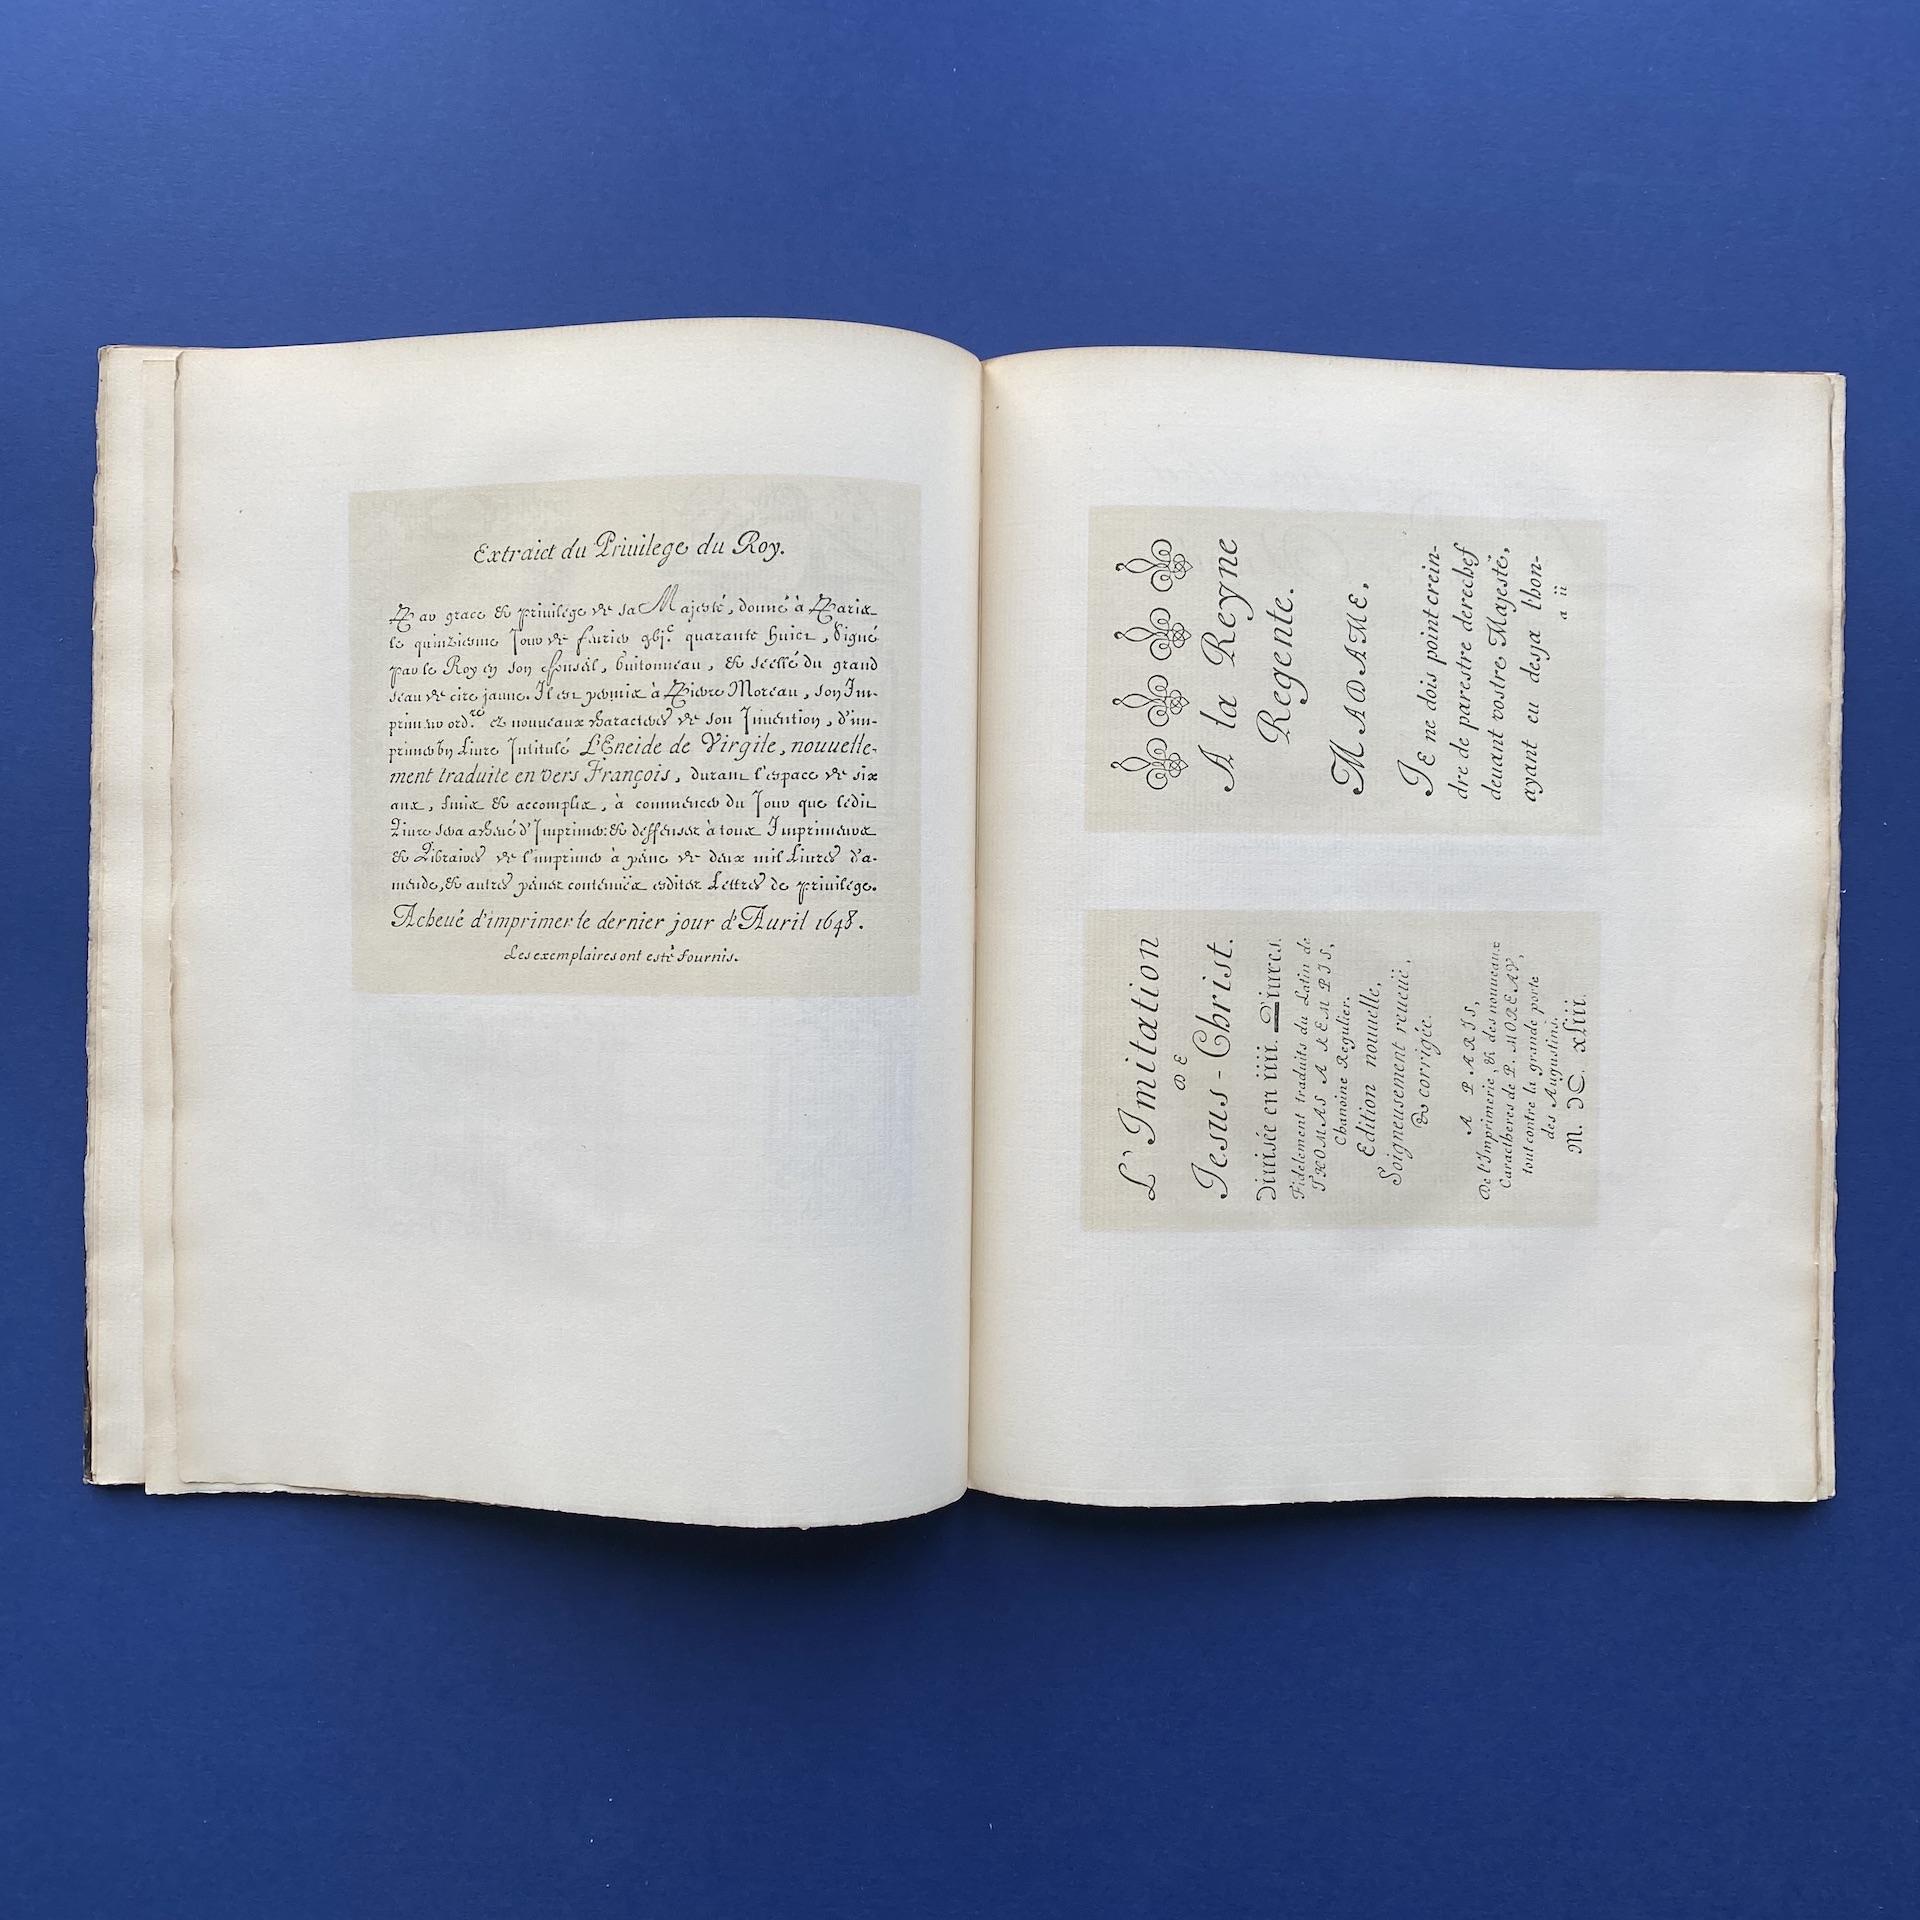 Extraict du Priuilege du Roy.
Par grace & priuilége de sa Majesté, donné à Paris
le quinziesme Jour de feurier gbjc quarante huict, Signé
par le Roy en son Conseil, Guitonneau, & séellé du grand
seau de cire jaune. Il est permis à Pierre Moreau, son Im-
primeur ordre ez nouueaux characteres de son Inuention, d'im-
primer vn Liure Intitulé L'Eneide de Virgile, nouuelle-
ment traduite en vers François, durant l'espace de six
ans, finis & accomplis, à commencer du Jour que lédit
Liure sera acheué d'Imprimer: & deffenses à tous Imprimeurs
& Libraires de l'imprimer à péine de deux mil Liures d'a-
mende, & autres péines contenuës esdites Lettres de priuilége.
Acheué d'imprimer le dernier jour d'Auril 1648.
Les exemplaires ont esté fournis.
A la Reyne
Regente.
MADAME,
JE ne dois point crein-
dre de parestre derechef
deuant vostre Majesté,
ayant eu desja l'hon-
a ii
L'Imitation
DE
Jesus-Christ.
Diuisée en iii. Liures.
Fidelement traduits du Latin de
THOMAS A KEMPIS,
Chanoine Regulier.
Edition nouuelle,
Soigneusement reueüe,
& corrigée.
A PARIS,
De l'Imprimerie, & des nouueaux
Caracteres de P. MOREAV,
tout contre la grande porte
des Augustins.
M. DC. xliii.